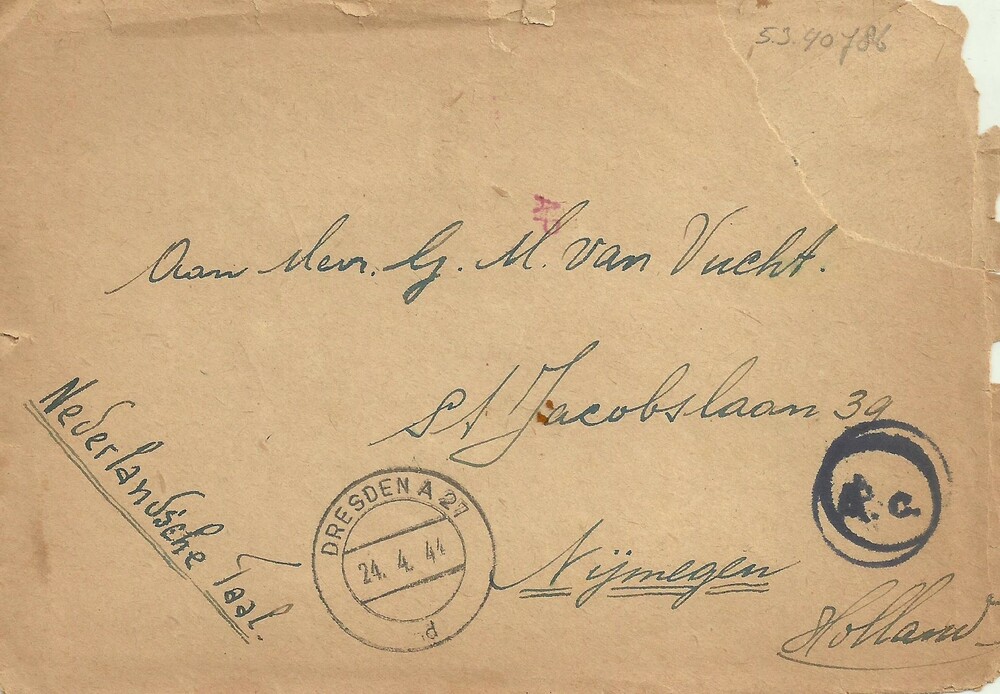 5.3.40786
Aan Mevr. G. M. van Vucht.
St Jacobslaan 39
Nijmegen
Holland
Nederlandsche Taal.
DRESDEN A 27
24. 4. 44
d